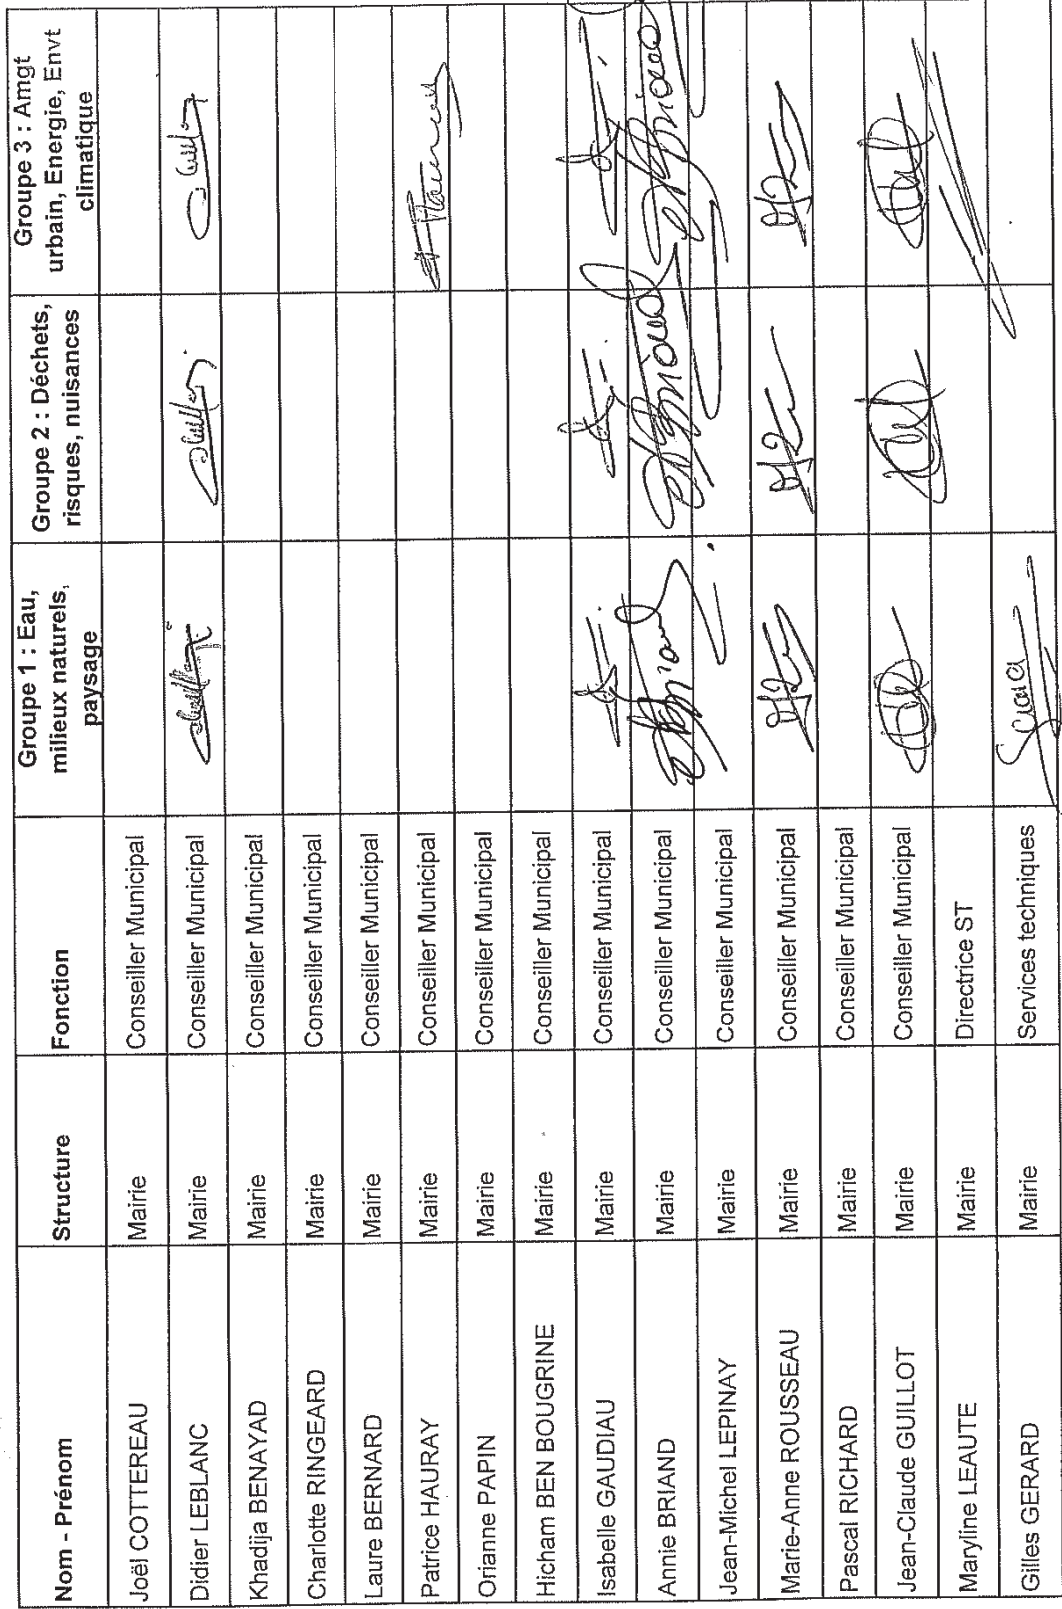 Nom - Prénom Structure Fonction Groupe 1 : Eau, milieux naturels, paysage Groupe 2 : Déchets, risques, nuisances Groupe 3 : Amgt urbain, Energie, Envt climatique
Joël COTTEREAU Mairie Conseiller Municipal
Didier LEBLANC Mairie Conseiller Municipal
Khadija BENAYAD Mairie Conseiller Municipal
Charlotte RINGEARD Mairie Conseiller Municipal
Laure BERNARD Mairie Conseiller Municipal
Patrice HAURAY Mairie Conseiller Municipal
Orianne PAPIN Mairie Conseiller Municipal
Hicham BEN BOUGRINE Mairie Conseiller Municipal
Isabelle GAUDIAU Mairie Conseiller Municipal
Annie BRIAND Mairie Conseiller Municipal
Jean-Michel LEPINAY Mairie Conseiller Municipal
Marie-Anne ROUSSEAU Mairie Conseiller Municipal
Pascal RICHARD Mairie Conseiller Municipal
Jean-Claude GUILLOT Mairie Conseiller Municipal
Maryline LEAUTE Mairie Directrice ST
Gilles GERARD Mairie Services techniques